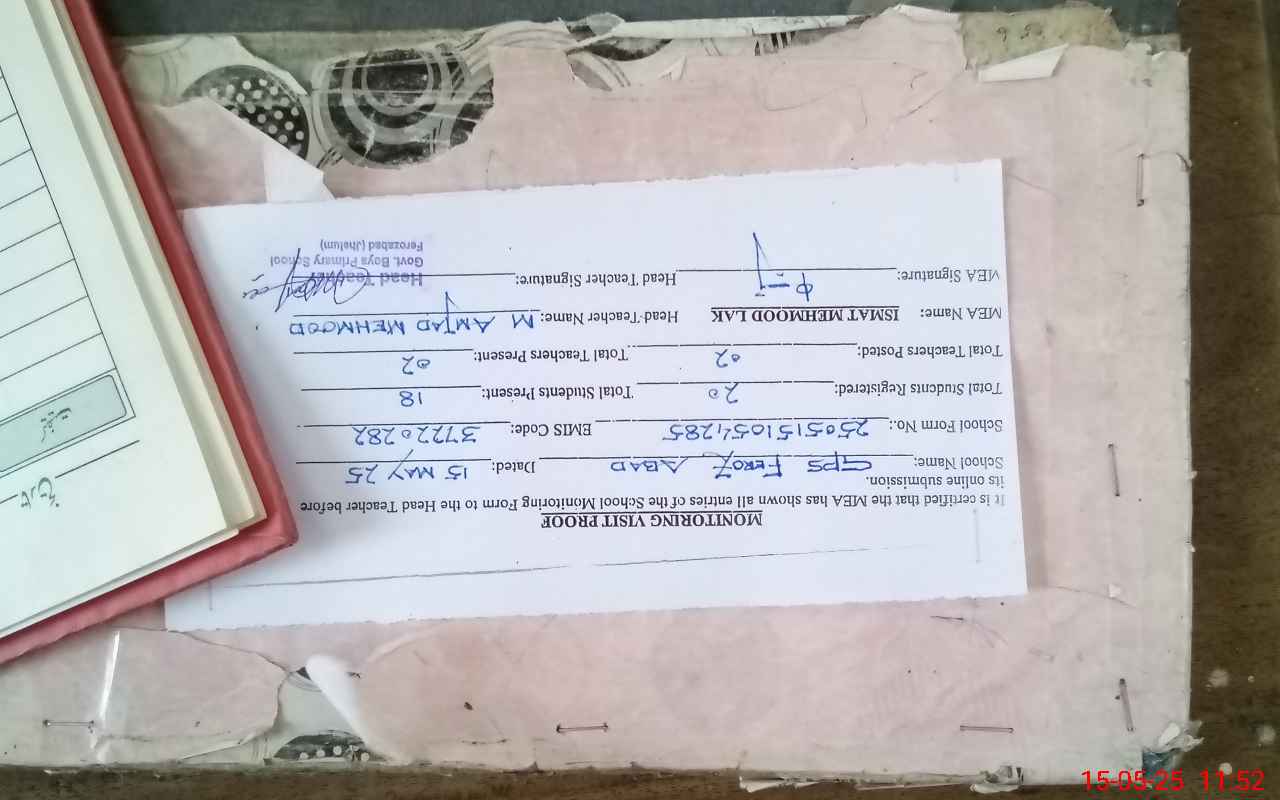 MONITORING VISIT PROOF
It is certified that the MEA has shown all entries of the School Monitoring Form to the Head Teacher before
its online submission.
School Name: GPS FEROZ ABAD Dated: 15 MAY 25
School Form No.: 2505151054285 EMIS Code: 37220282
Total Students Registered: 20 Total Students Present: 18
Total Teachers Posted: 02 Total Teachers Present: 02
MEA Name: ISMAT MEHMOOD LAK Head Teacher Name: M AMJAD MEHMOOD
MEA Signature: Head Teacher Signature:
Head Teacher
Govt. Boys Primary School
Ferozabad (Jhelum)
تاریخ
کیفیت
15-05-25 11:52